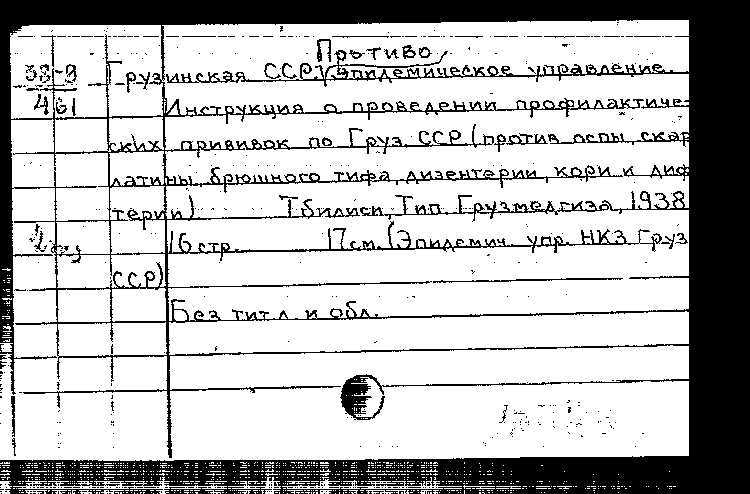 Противо
38-9 Грузинская ССР. эпидемическое управление.
461 Инструкция о проведении профилактиче-
ских прививок по Груз. ССР (против оспы, скар
латины, брюшного тифа, дизентерии, кори и диф
терии) Тбилиси, Тип. Грузмедгиза, 1938
2 экз 16 стр. 17 см. (Эпидемич. упр. НКЗ Груз
ССР)
Без тит. л. и обл.